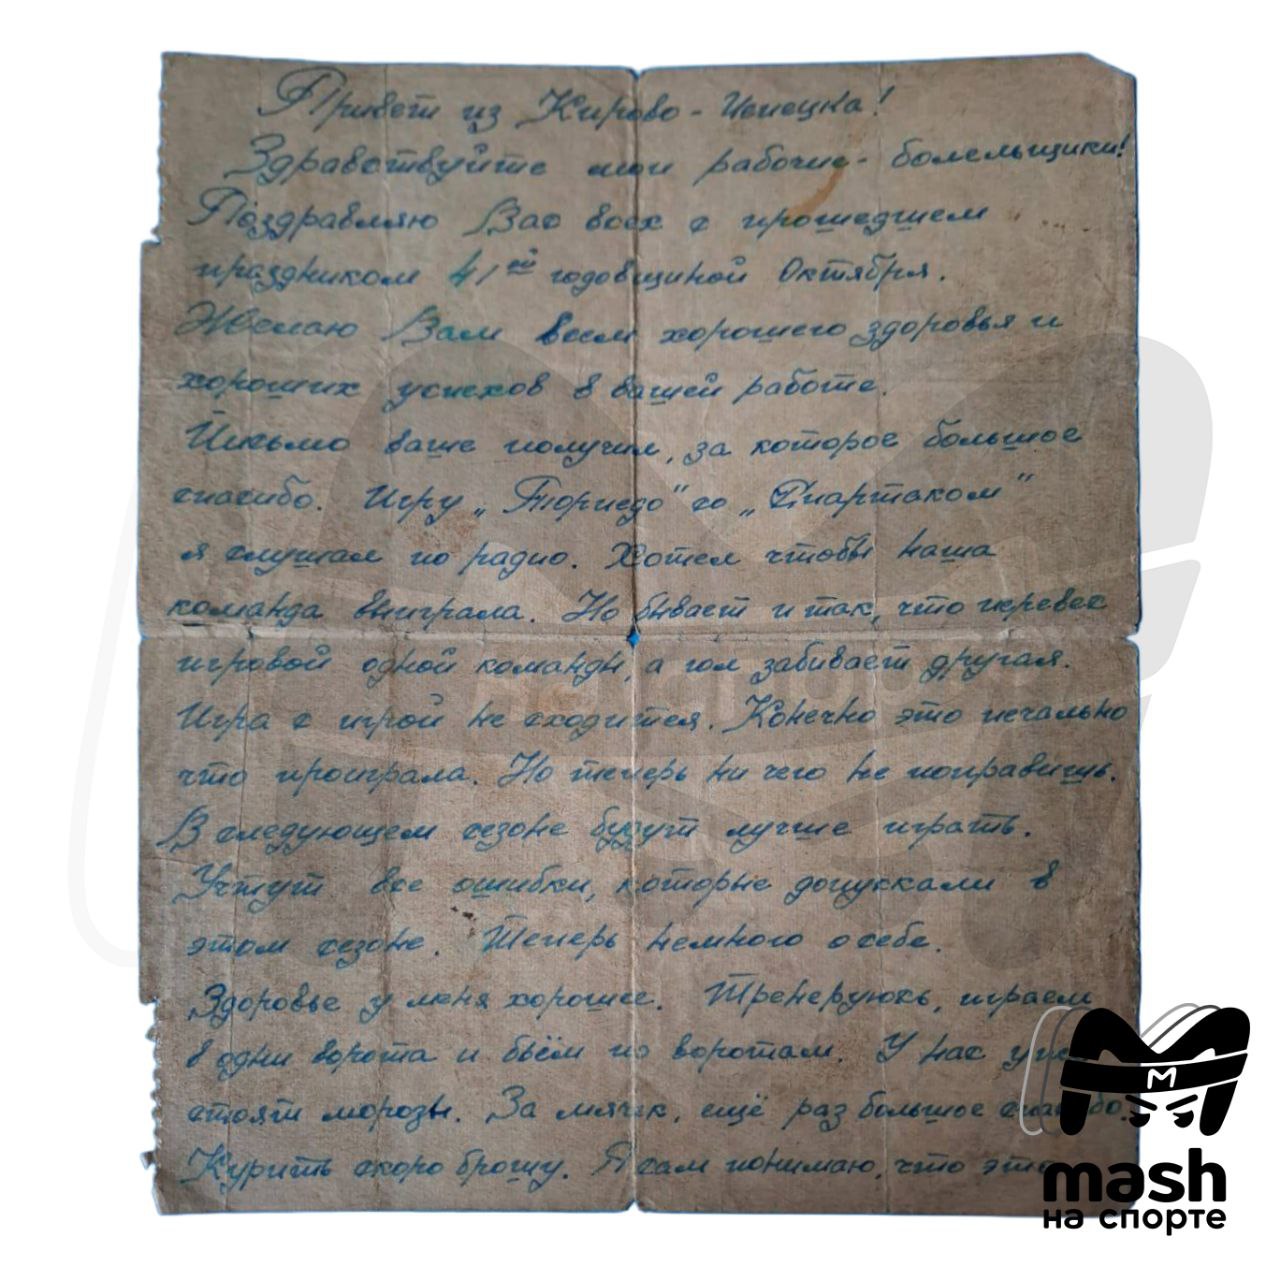 Привет из Кирово-Чепецка!
Здравствуйте мои рабочие-болельщики!
Поздравляю Вас всех с прошедшем
праздником 41ой годовщиной Октября.
Желаю Вам всем хорошего здоровья и
хороших успехов в вашей работе.
Письмо ваше получил, за которое большое
спасибо. Игру „Торпедо" со „Спартаком"
я слушал по радио. Хотел чтобы наша
команда выиграла. Но бывает и так, что перевес
игровой одной команды, а гол забивает другая.
Игра с игрой не сходится. Конечно это печально
что проиграла. Но теперь ни чего не поправишь.
В следующем сезоне будут лучше играть.
Учтут все ошибки, которые допускали в
этом сезоне. Теперь немного о себе.
Здоровье у меня хорошее. Тренеруюсь, играем
в одни ворота и бьём по воротам. У нас уже
стоят морозы. За мячик, ещё раз большое спасибо.
Курить скоро брошу. Я сам понимаю, что это
mash
на спорте